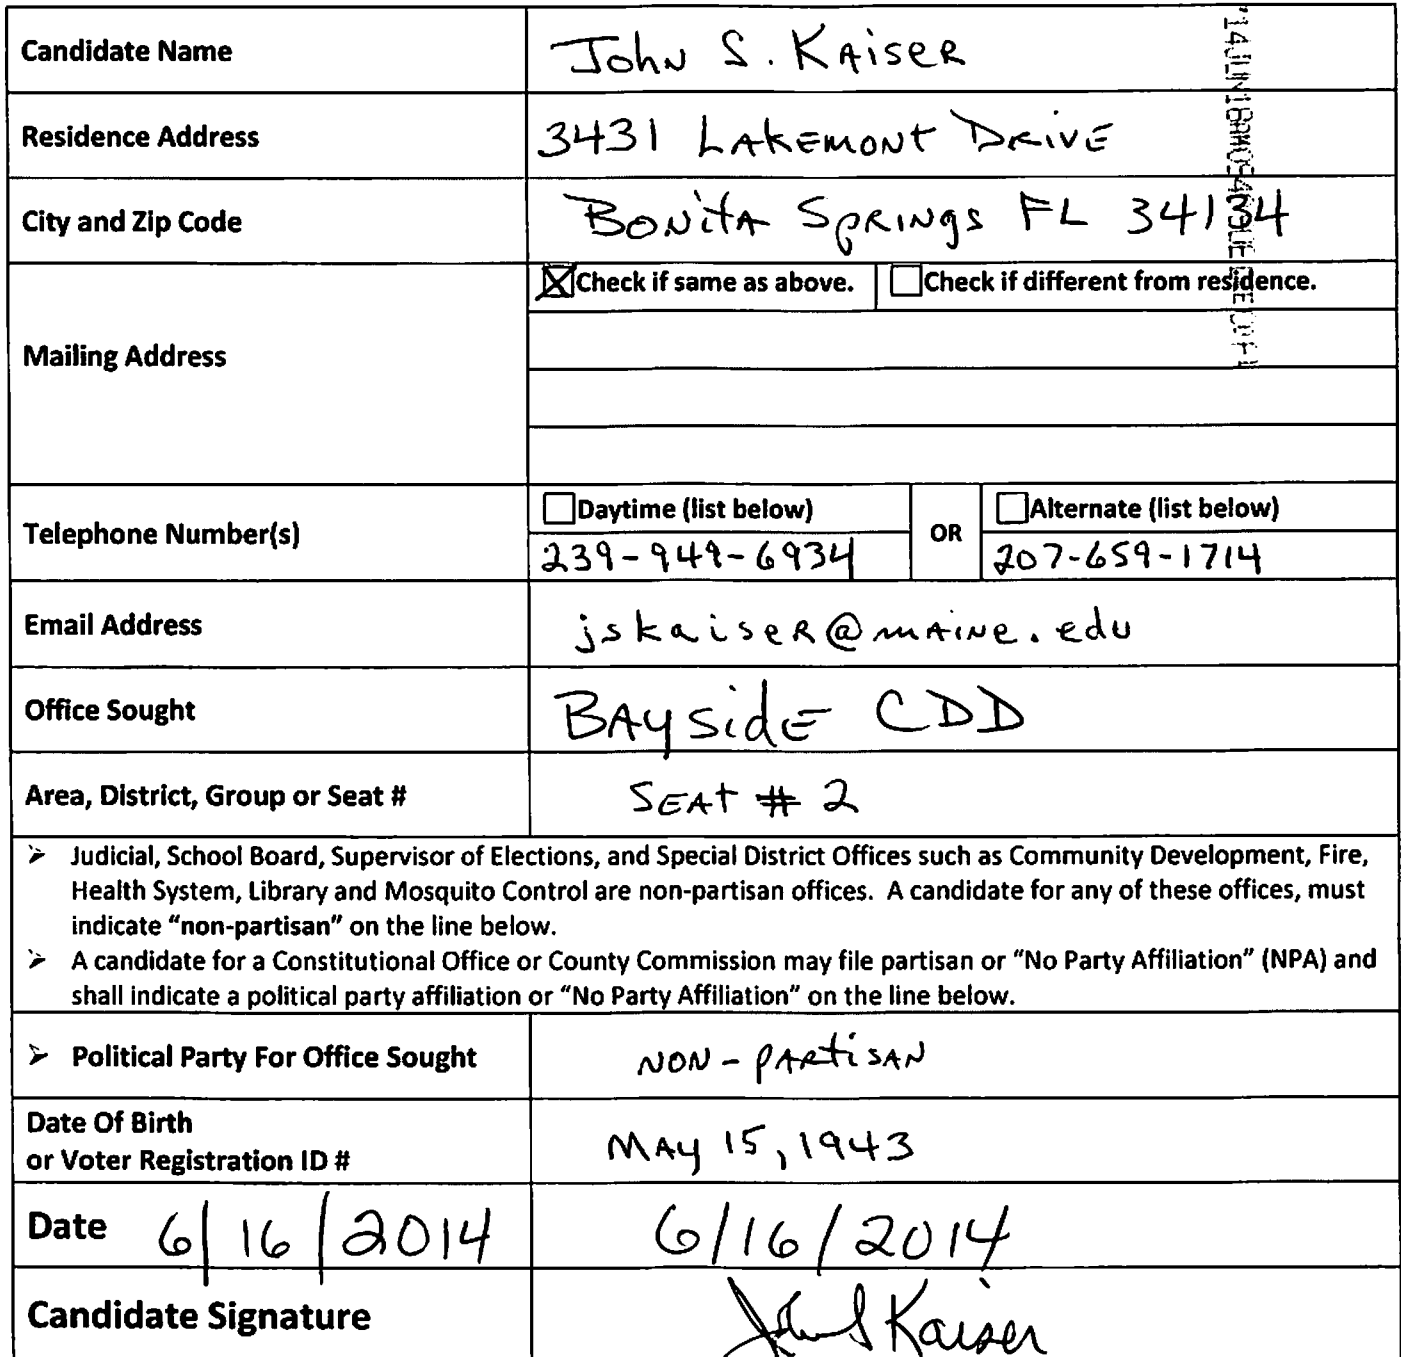 Candidate Name John S. Kaiser
Residence Address 3431 Lakemont Drive
City and Zip Code Bonita Springs FL 34134
☒ Check if same as above. ☐ Check if different from residence.
Mailing Address
☐ Daytime (list below) OR ☐ Alternate (list below)
Telephone Number(s) 239-949-6934 207-659-1714
Email Address jskaiser@maine.edu
Office Sought Bayside CDD
Area, District, Group or Seat # Seat # 2
➢ Judicial, School Board, Supervisor of Elections, and Special District Offices such as Community Development, Fire,
Health System, Library and Mosquito Control are non-partisan offices. A candidate for any of these offices, must
indicate “non-partisan” on the line below.
➢ A candidate for a Constitutional Office or County Commission may file partisan or “No Party Affiliation” (NPA) and
shall indicate a political party affiliation or “No Party Affiliation” on the line below.
➢ Political Party For Office Sought non-partisan
Date Of Birth
or Voter Registration ID # May 15, 1943
Date 6/16/2014 6/16/2014
Candidate Signature John S Kaiser